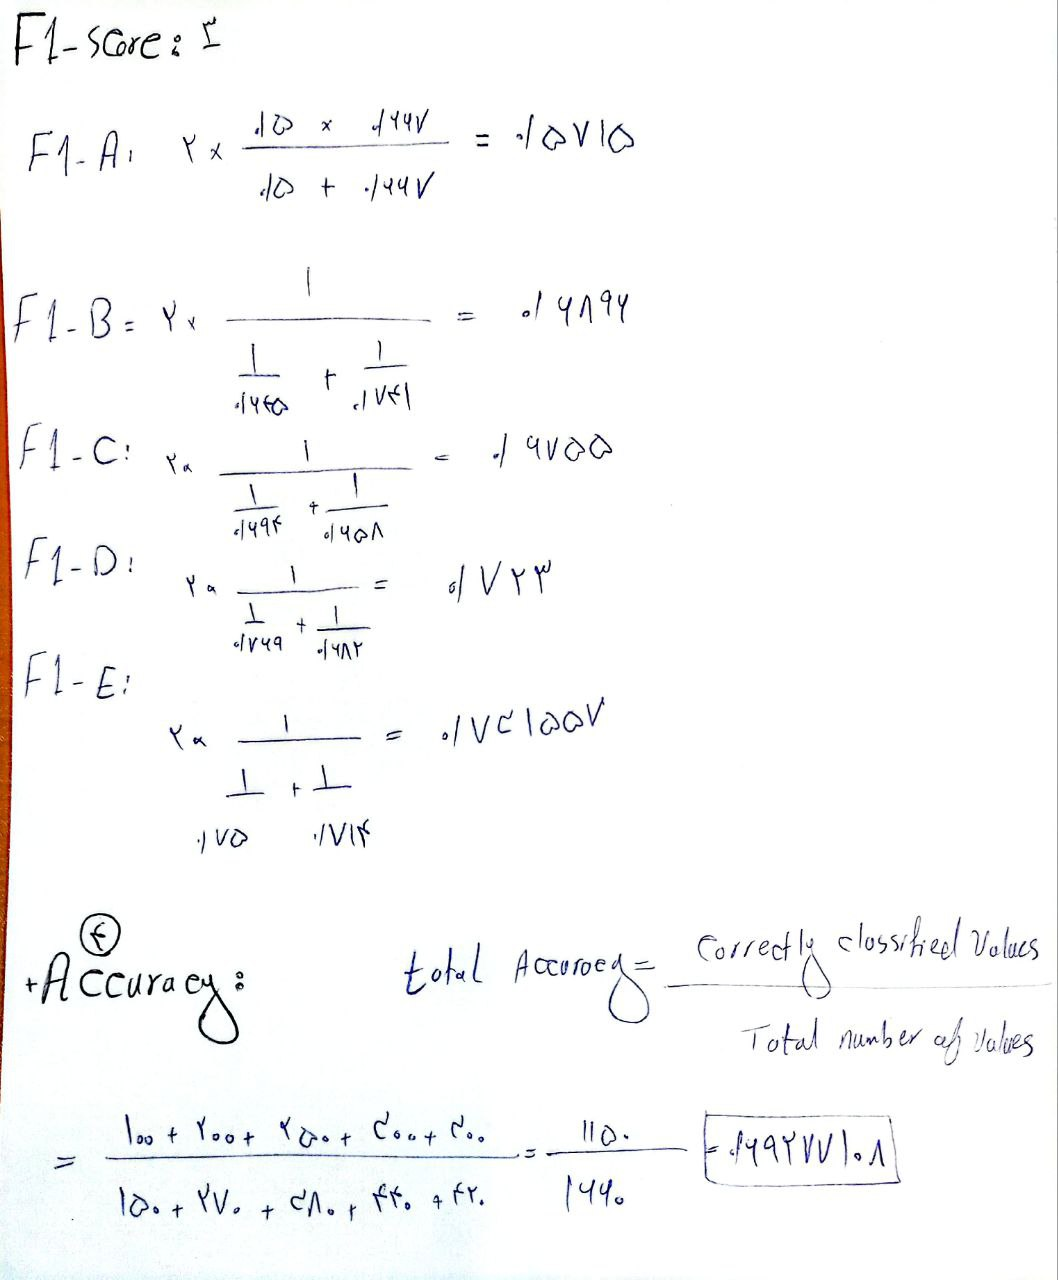 F1-score: ۳
F1-A: ۲ × (۰/۵ × ۰/۶۶۷) / (۰/۵ + ۰/۶۶۷) = ۰/۵۷۱۵
F1-B = ۲ × ۱ / (۱/۰/۶۴۵ + ۱/۰/۷۴۱) = ۰/۶۸۹۶
F1-C: ۲ × ۱ / (۱/۰/۶۹۴ + ۱/۰/۶۵۸) = ۰/۶۷۵۵
F1-D: ۲ × ۱ / (۱/۰/۷۶۹ + ۱/۰/۶۸۲) = ۰/۷۲۳
F1-E: ۲ × ۱ / (۱/۰/۷۵ + ۱/۰/۷۱۴) = ۰/۷۳۱۵۵۷
۴
+Accuracy: total Accuracy = Correctly classified Values / Total number of values
= (۱۰۰ + ۲۰۰ + ۲۵۰ + ۳۰۰ + ۳۰۰) / (۱۵۰ + ۲۷۰ + ۳۸۰ + ۴۴۰ + ۴۲۰) = ۱۱۵۰ / ۱۶۶۰ = ۰/۶۹۲۷۷۱۰۸